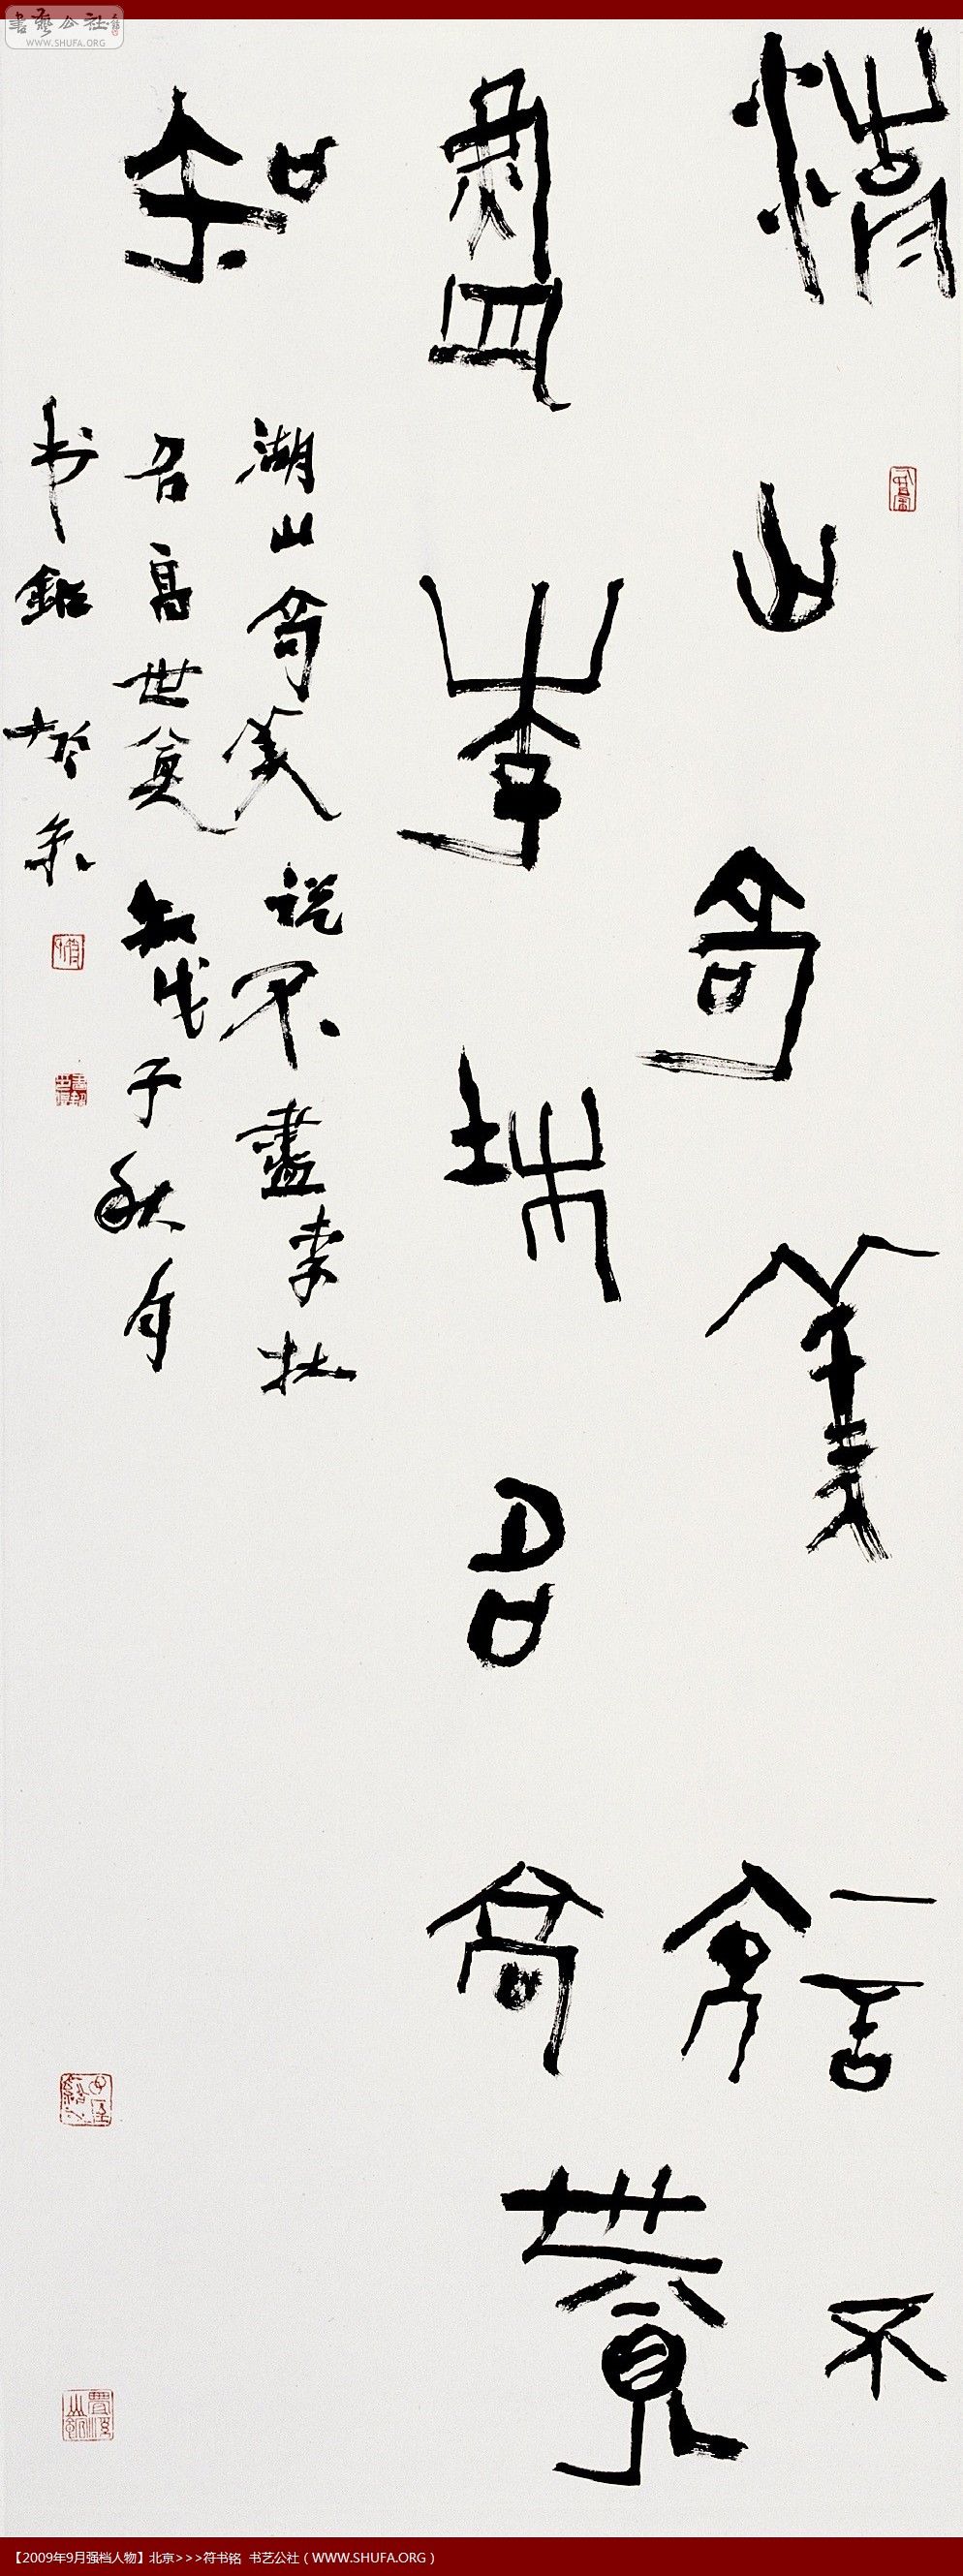 書藝公社
WWW.SHUFA.ORG
湖山奇美說不
盡李杜名高世
知
湖山奇美說不盡李杜
名高世知戊子秋月
书銘
【2009年9月强档人物】北京>>>符书铭 书艺公社（WWW.SHUFA.ORG）